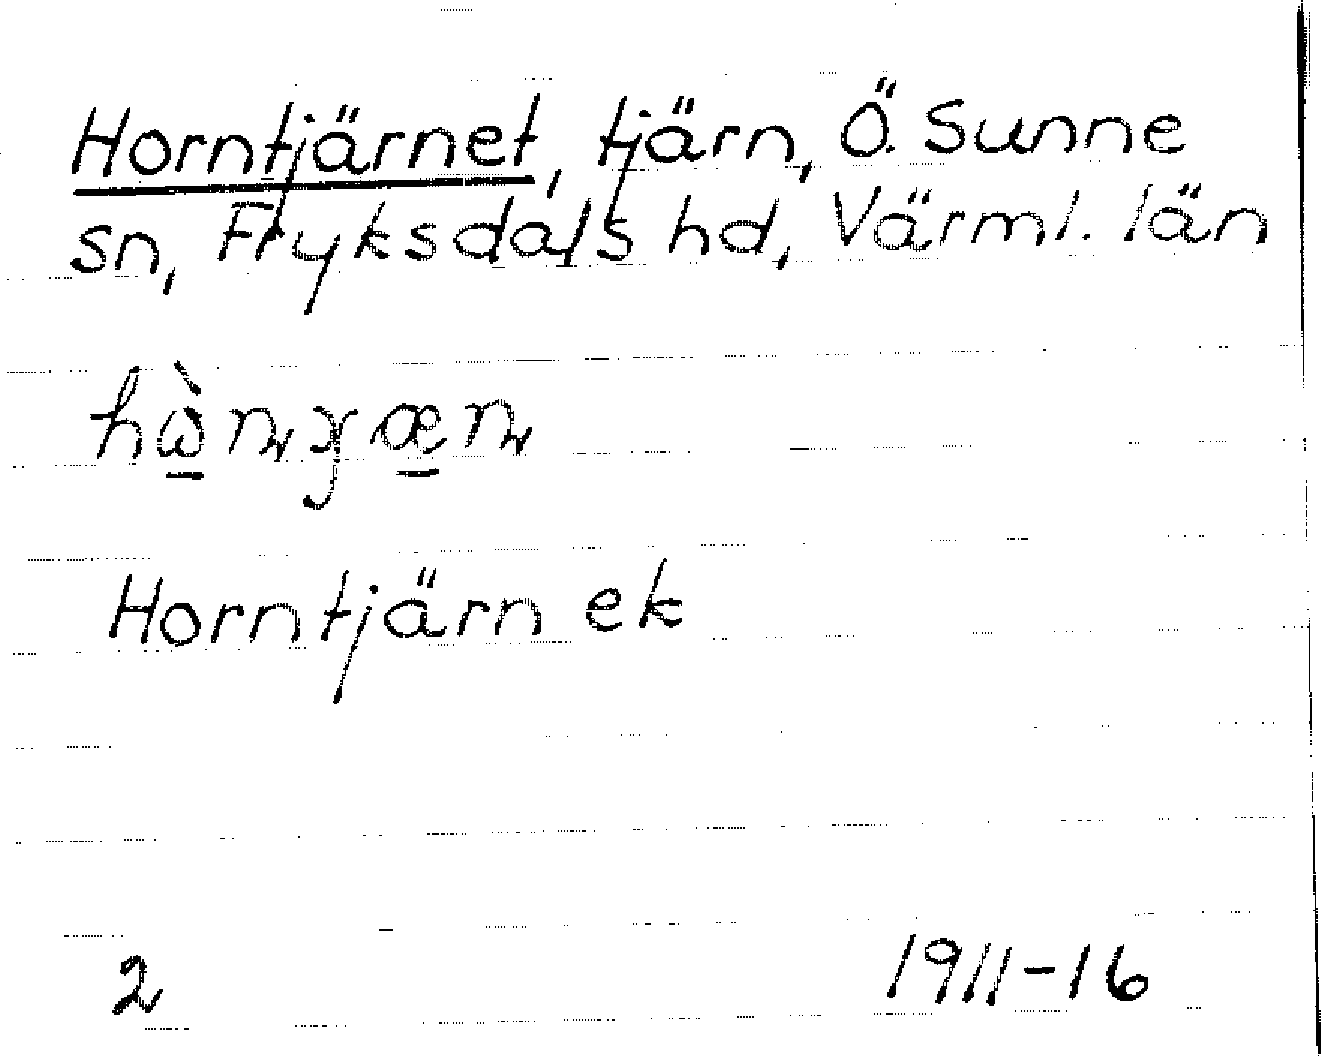 Horntjärnet, tjärn, Ö. Sunne
sn, Fryksdals hd, Värml. län
Horntjärn ek
2 1911-16